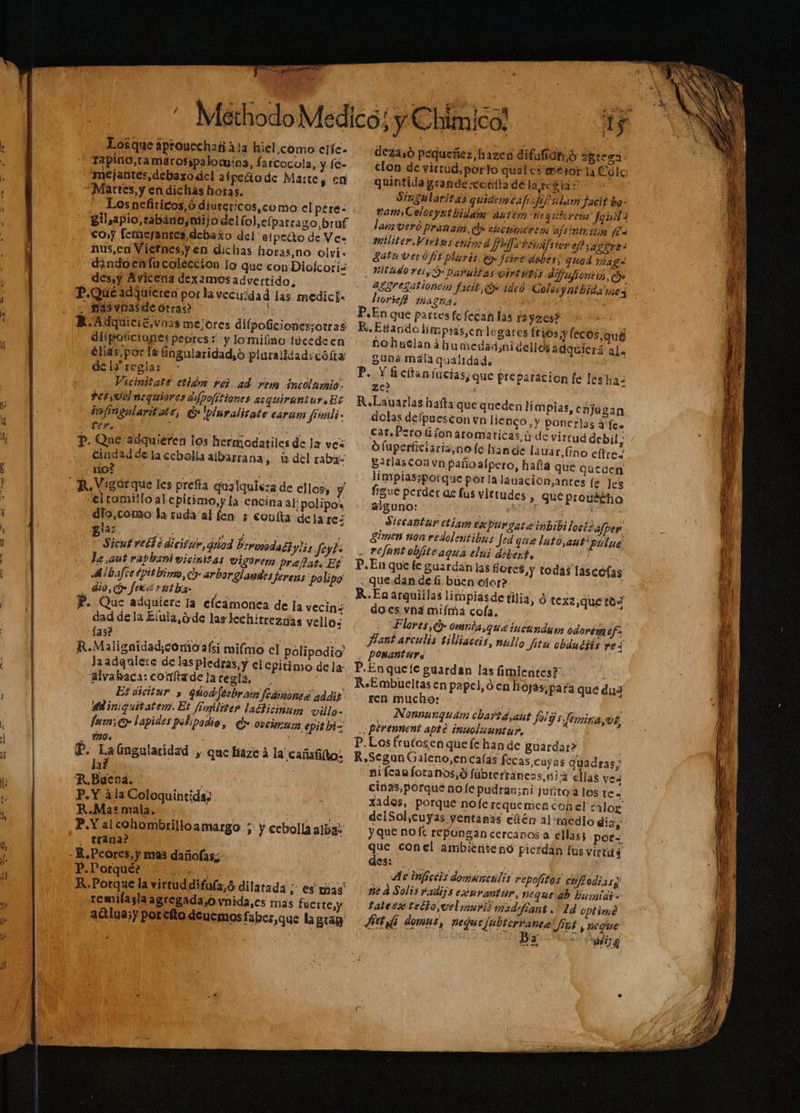 Methodo Medico, y Chimico. 15
Los que aprouechan à la hiel, como esse-
rapino, tamaros, palomina, sarcocola, y se-
mejantes, debaxo del aspecto de Marte, en
Martes, y en dichas horas.
Los nefiticos, ò diureticos, como el pere-
gil, apio, rabano, mijo del sol, esparrago, brus
co, y semejantes, debaxo del aspecto de Ve-
nus, en Viernes, y en dichas horas, no olvi-
dando en su coleccion lo que con Dioscori-
des, y Avicena dexamos advertido.
P. Què adquieren por la vecindad las medici-
nas vnas de otras?
R. Adquieré, vnas mejores disposiciones; otras
disposiciones peores: y lo mismo sucede en
ellas, por la singularidad, ò pluralidad: cósta
de la regla:
Vicinitate etiam rei ad rem incolumio-
res, vel nequiores disposstiones acquiruntur. Et
in singularitate, & pluralitate earum simili-
ter.
P. Que adquieren los hermodatiles de la ve-
cindad de la cebolla albarrana, ù del raba-
no?
R. Vigor que les presta qualquiera de ellos, y
el tomillo al epitimo, y la encina al polipo-
dio, como la ruda al sen; consta de la re-
gla:
Sicut rectè dicitur, quod Hermodactylis scyl-
le, aut raphani vicinitas vigorem præstat. Et
Albasce epithimo, & arbor glandes ferens polipo
dio, & sene ruta.
P. Que adquiere la escamonea de la vecin-
dad de la Esula, ò de las lechitreznas vello-
sas?
R. Malignidad; como assi mismo el polipodio
la adquiere de las piedras, y el epitimo de la
alvahaca: consta de la regla,
Et dicitur, quod esbram scamonea addit
iniquitatem. Et similiter lacticinum villo-
sum; & lapides polipodio, & occimum epithi-
mo.
P. La singularidad, que haze à la cañafisto-
la?
R. Buena.
P. Y à la Coloquintida?
R. Mas mala.
P. Y al cohombrillo amargo; y cebolla alba-
rrana?
R. Peores, y mas dañosas.
P. Porquè?
R. Porque la virtud difusa, ò dilatada, es mas
remisa, la agregada, ò vnida, es mas fuerte, y
actiua; y por esto deuemos saber, que la gran
deza, ò pequeñez, hazen difusion, ò agrega-
cion de virtud, por lo qual es mejor la Colo
quintida grande: consta de la regla:
Singularitas quidem casiæfistulam facit bo-
nam, Colocynthidam autem nequiorem: squilla
lam verò prauam, & cucumerem asininum si-
militer. Virtus enim diffussa remissior est, aggre-
gata verò fit pluris. & scire debes, quod mag-
nitudo rei, & paruitas virtutis diffusionem, &
aggregationem facit, & ideò Colocynthida me-
lior est magna.
P. En que partes se secan las rayzes?
R. Estando limpias, en lugares frios, y secos, què
no huelan à humedad, ni dellos adquiera al-
guna mala qualidad.
P. Y si estan sucias, que preparacion se les ha-
ze?
R. Lauarlas hasta que queden limpias, enjugan
dolas despues con vn lienço, y ponerlas à se-
car. Pero si son aromaticas, ù de virtud debil,
ò superficiaria, no se han de lauar, sino estre-
garlas con vn paño aspero, hasta que queden
limpias; porque por la lauacion, antes se les
sigue perder de sus virtudes, que prouecho
alguno:
Siccantur etiam expurgatæ in sibi locis asper
gimen non redolentibus sed quæ luto, aut puluere
resunt obsitæ aqua elui debent.
P. En que se guardan las flores, y todas las cosas
que dan de si buen olor?
R. En arquillas limpias de tilia, ò texa, que todo
es vna misma cosa.
Flores, & omnia, quæ iucundum odorem ef-
flant arculis tilliaceis, nullo situ obductis re-
ponantur.
P. En que se guardan las simientes?
R. Embueltas en papel, ò en hojas, para que du-
ren mucho:
Nonnunquàm charta, aut folijs semina, vt
perennent aptè inuoluuntur.
P. Los frutos, en que se han de guardar?
R. Segun Galeno, en casas secas, cuyas quadras,
ni sean sotanos, ò subterraneas, ni à ellas ve-
cinas, porque no se pudran; ni junto à los te-
xados, porque no se requemen con el calor
del Sol, cuyas ventanas estén al medio dia,
y que no se repongan cercanos à ellas; por-
que con el ambiente no pierdan sus virtu-
des:
Ac in siccis domunculis repositos custodias,
ne à Solis radijs exurantur, neque ab humidi-
tate ex tecto, vel muris madefiant. Id optimè
fiet si domus, neque subterraneæ sint, neque
B2